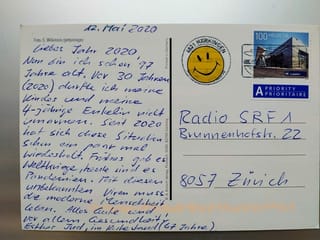 12. Mai 2020
Liebes Jahr 2020
Nun bin ich schon 77
Jahre alt. Vor 30 Jahren
(2020) durfte ich meine
Kinder und meine
4-jährige Enkelin nicht
umarmen. Seit 2020
hat sich diese Situation
schon ein paar mal
wiederholt. Früher gab es
Weltkriege, heute sind es
Pandemien. Mit diesen
unbekannten Viren muss
die moderne Menschheit
leben. Alles Gute und
vor allem Gesundheit!
Esther, im Ruhestand (47 Jahre)
4621 HÄRKINGEN
100 HELVETIA
A PRIORITY
PRIORITAIRE
Radio SRF 1
Brunnenhofstr. 22
8057 Zürich